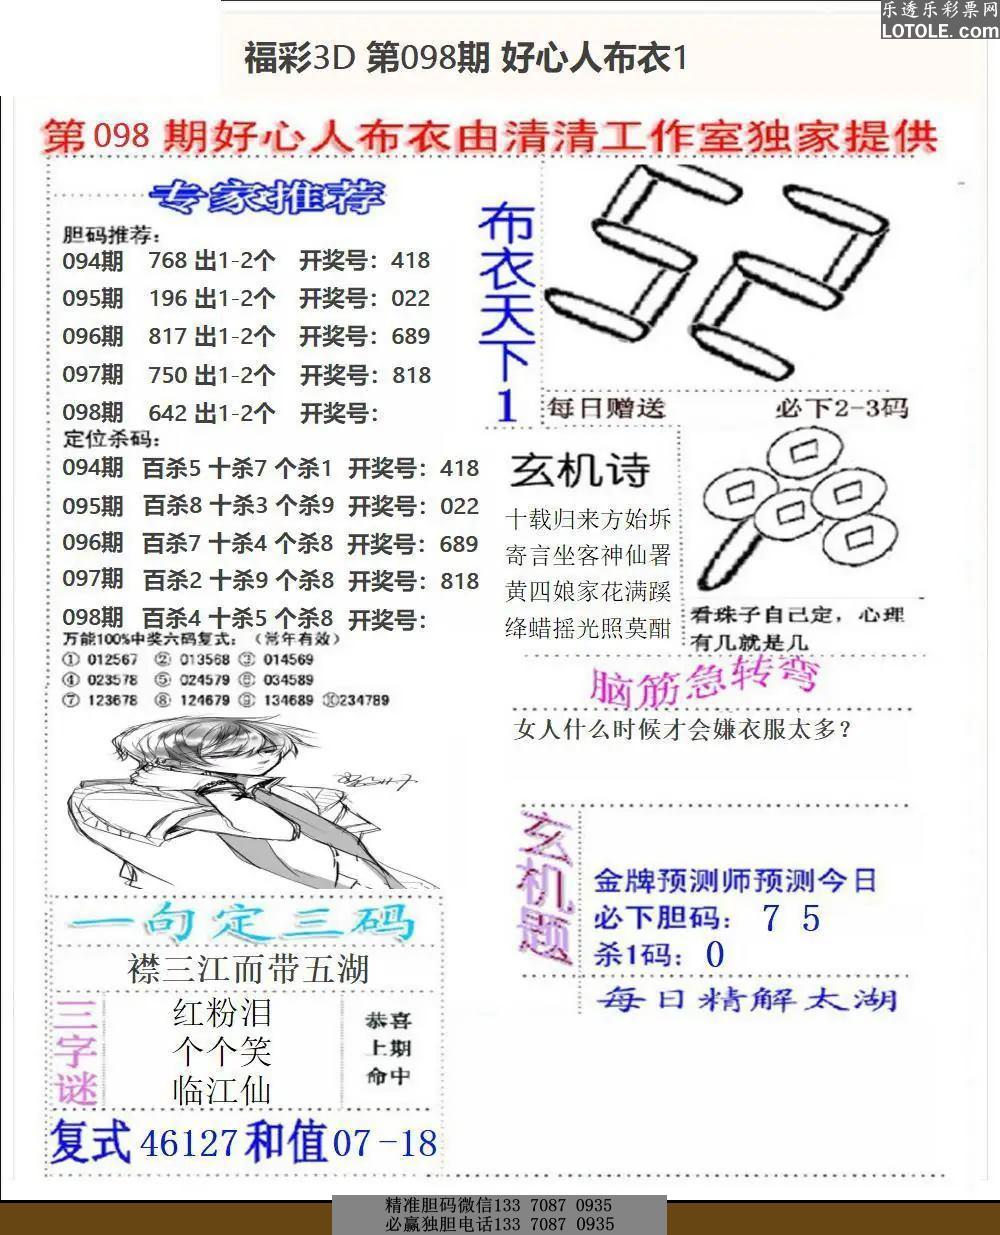 乐透乐彩票网
LOTOLE.com
福彩3D 第098期 好心人布衣1
第 098 期好心人布衣由清清工作室独家提供
专家推荐
胆码推荐：
094期 768 出1-2个 开奖号：418
095期 196 出1-2个 开奖号：022
096期 817 出1-2个 开奖号：689
097期 750 出1-2个 开奖号：818
098期 642 出1-2个 开奖号：
定位杀码：
094期 百杀5 十杀7 个杀1 开奖号：418
095期 百杀8 十杀3 个杀9 开奖号：022
096期 百杀7 十杀4 个杀8 开奖号：689
097期 百杀2 十杀9 个杀8 开奖号：818
098期 百杀4 十杀5 个杀8 开奖号：
万能100%中奖六码复式：（常年有效）
① 012567 ② 013568 ③ 014569
④ 023578 ⑤ 024579 ⑥ 034589
⑦ 123678 ⑧ 124679 ⑨ 134689 ⑩234789
一句定三码
襟三江而带五湖
三字谜
红粉泪
个个笑
临江仙
恭喜
上期
命中
复式 46127 和值 07-18
布衣天下1
52
每日赠送 必下2-3码
玄机诗
十载归来方始坼
寄言坐客神仙署
黄四娘家花满蹊
绛蜡摇光照莫酣
看珠子自己定，心理
有几就是几
脑筋急转弯
女人什么时候才会嫌衣服太多？
玄机题
金牌预测师预测今日
必下胆码： 7 5
杀1码： 0
每日精解太湖
精准胆码微信133 7087 0935
必赢独胆电话133 7087 0935